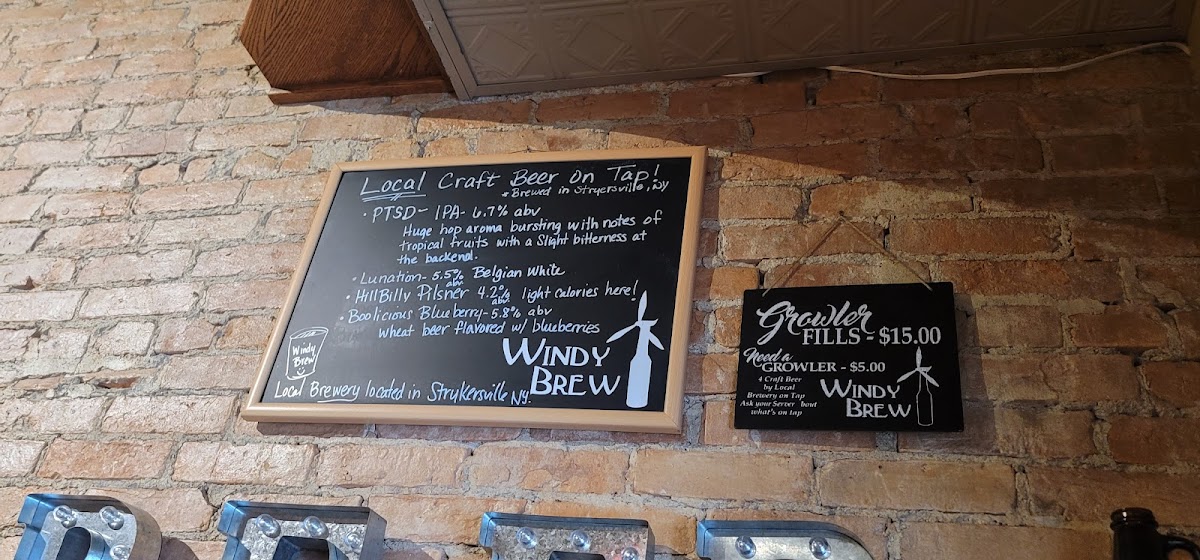 Local Craft Beer On Tap!
*Brewed in Stryersville, Ny
• PTSD- IPA- 6.7% abv
Huge hop aroma bursting with notes of
tropical fruits with a slight bitterness at
the backend.
• Lunation- 5.5% abv Belgian White
• HillBilly Pilsner 4.2% abv light calories here!
• Boolicious Blueberry- 5.8% abv
Wheat beer flavored w/ blueberries
Windy
Brew
WINDY
BREW
Local Brewery located in Strykersville Ny.
Growler
FILLS - $15.00
Need a
GROWLER - $5.00
4 Craft Beer
by Local
Brewery on Tap
Ask your Server 'bout
what's on tap
WINDY
BREW